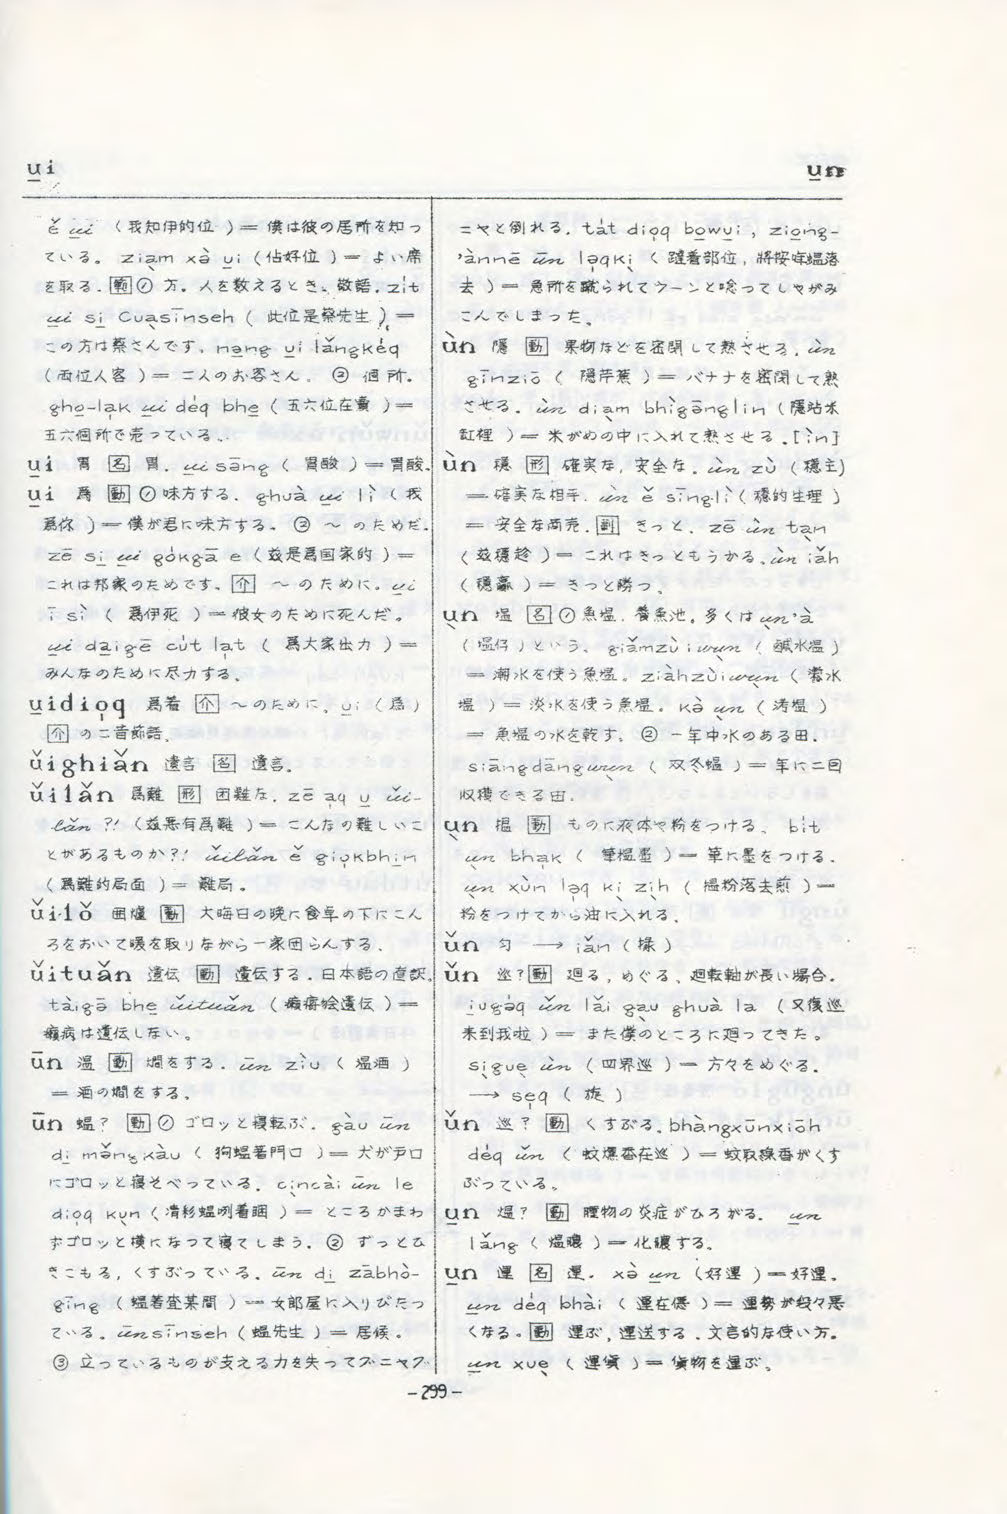 u̱i
u̱n
ě u̱i （我知伊的位）＝ 僕は彼の居所を知っ
ている。 ziạm xà u̱i（佔好位）＝ よい席
を取る．①方。人を数えるとき、敬語．zit
u̱i si̱ Cuạsīnseh（此位是蔡先生）＝
この方は蔡さんです．nə̱ng u̱i lǎngkéq
（両位人客）＝ 二人のお客さん。② 個所。
gho̱-la̍k u̱i déq bhe̱（五六位在賣）＝
五六個所で売っている．
u̱i 胃 [名] 胃．u̱i sāng（胃酸）＝胃酸．
u̱i 爲 [動] ①味方する．ghuà u̱i lì（我
爲你）＝ 僕が君に味方する。② ～のためだ．
zē si̱ u̱i gókgā e（玆是爲国家的）＝
これは邦家のためです．[介] ～のために．u̱i
ī sì（爲伊死）＝彼女のために死んだ。
u̱i da̱igē cút la̍t（爲大家出力）＝
みんなのために尽力する．
u̱idio̍q 爲着 [介] ～のために．u̱i（爲）
[介] の二音節語．
ǔighiǎn 遺言 [名] 遺言．
ǔilǎn 爲難 [形] 困難な．zē a̍q u̱ ǔi-
lǎn ?!（玆悪有爲難）＝ こんなの難しいこ
とがあるものか?! ǔilǎn ě gio̍kbhi̱n
（爲難的局面）＝ 難局．
ǔilǒ 囲爐 [動] 大晦日の晩に食卓の下にこん
ろをおいて暖を取りながら一家団らんする．
ǔituǎn 遺伝 [動] 遺伝する．日本語の直訳．
tàigē bhe̱ ǔituǎn（癩𰣻𣍐遺伝）＝
癩病は遺伝しない。
ūn 温 [動] 燗をする．ūn ziù（温酒）
＝ 酒の燗をする．
ūn 蝹? [動] ① ゴロッと寝転ぶ．gàu ūn
di̱ mə̌ngkàu（狗蝹著門口）＝ 犬が戸口
にゴロッと寝そべっている．cịncài ūn le
dio̍q kụn（凊彩蝹咧着睏）＝ ところかまわ
ずゴロッと横になって寝てしまう．② ずっとひ
きこもる，くすぶっている．ūn di̱ zābhò-
gīng（蝹著査某間）＝ 女郎屋に入りびたっ
ている．ūnsīnseh（蝹先生）＝ 居候。
③ 立っているものが支える力を失ってグニャグ
ニャと倒れる．tàt dio̍q bo̱wu̱i , ziōng-
'ànnē ūn lə̍qkị（躂着部位，將按哖蝹落
去）＝ 急所を蹴られてウーンと唸ってしゃがみ
こんでしまった。
ùn 隱 [動] 果物などを密閉して熟させる．ùn
gīnziō（隱芹蕉）＝ バナナを密閉して熟
させる．ùn diạm bhìgānglin（隱站米
缸裡）＝ 米がめの中に入れて熟させる．[ìn]
ùn 穩 [形] 確実な，安全な．ùn zù（穩主）
＝ 確実な相手．ùn ě sīnglì（穩的生理）
＝ 安全な商売．[副] きっと．zē ùn tạn
（玆穩趁）＝ これはきっともうかる．ùn iǎh
（穩贏）＝ きっと勝つ．
ụn 塭 [名] ① 魚塭．養魚池．多くはụn'à
（塭仔）という．giǎmzùiwụn（鹹水塭）
＝ 潮水を使う魚塭．ziàhzùiwụn（饗水
塭）＝ 淡水を使う魚塭．kà ụn（洘塭）
＝ 魚塭の水を乾す．② 一年中水のある田．
siāngdāngwụn（双冬塭）＝ 年に二回
収穫できる田．
ụn 搵 [動] ものに液体や粉をつける．bít
ụn bha̍k（筆搵墨）＝ 筆に墨をつける．
ụn xùn lə̍q kị zịh（搵粉落去煎）＝
粉をつけてから油に入れる．
ǔn 匀 ⟶ iǎn（檨）
ǔn 巡? [動] 廻る，めぐる，廻転軸が長い場合．
i̱ugə́q ǔn lǎi gạu ghuà la（又復巡
来到我啦）＝ また僕のところに廻ってきた。
sịguẹ ǔn（四界巡）＝ 方々をめぐる．
⟶ se̍q（旋）
ǔn 巡? [動] くすぶる．bhàngxūnxiōh
déq ǔn（蚊燻香在巡）＝ 蚊取線香がくす
ぶっている。
u̱n 熅? [動] 腫物の炎症がひろがる．u̱n
lǎng（熅膿）＝ 化膿する．
u̱n 運 [名] 運．xè u̱n（好運）＝好運．
u̱n déq bhài（運在僫）＝ 運勢が段々悪
くなる。[動] 運ぶ，運送する．文言的な使い方．
u̱n xuẹ（運貨）＝ 貨物を運ぶ。
－299－